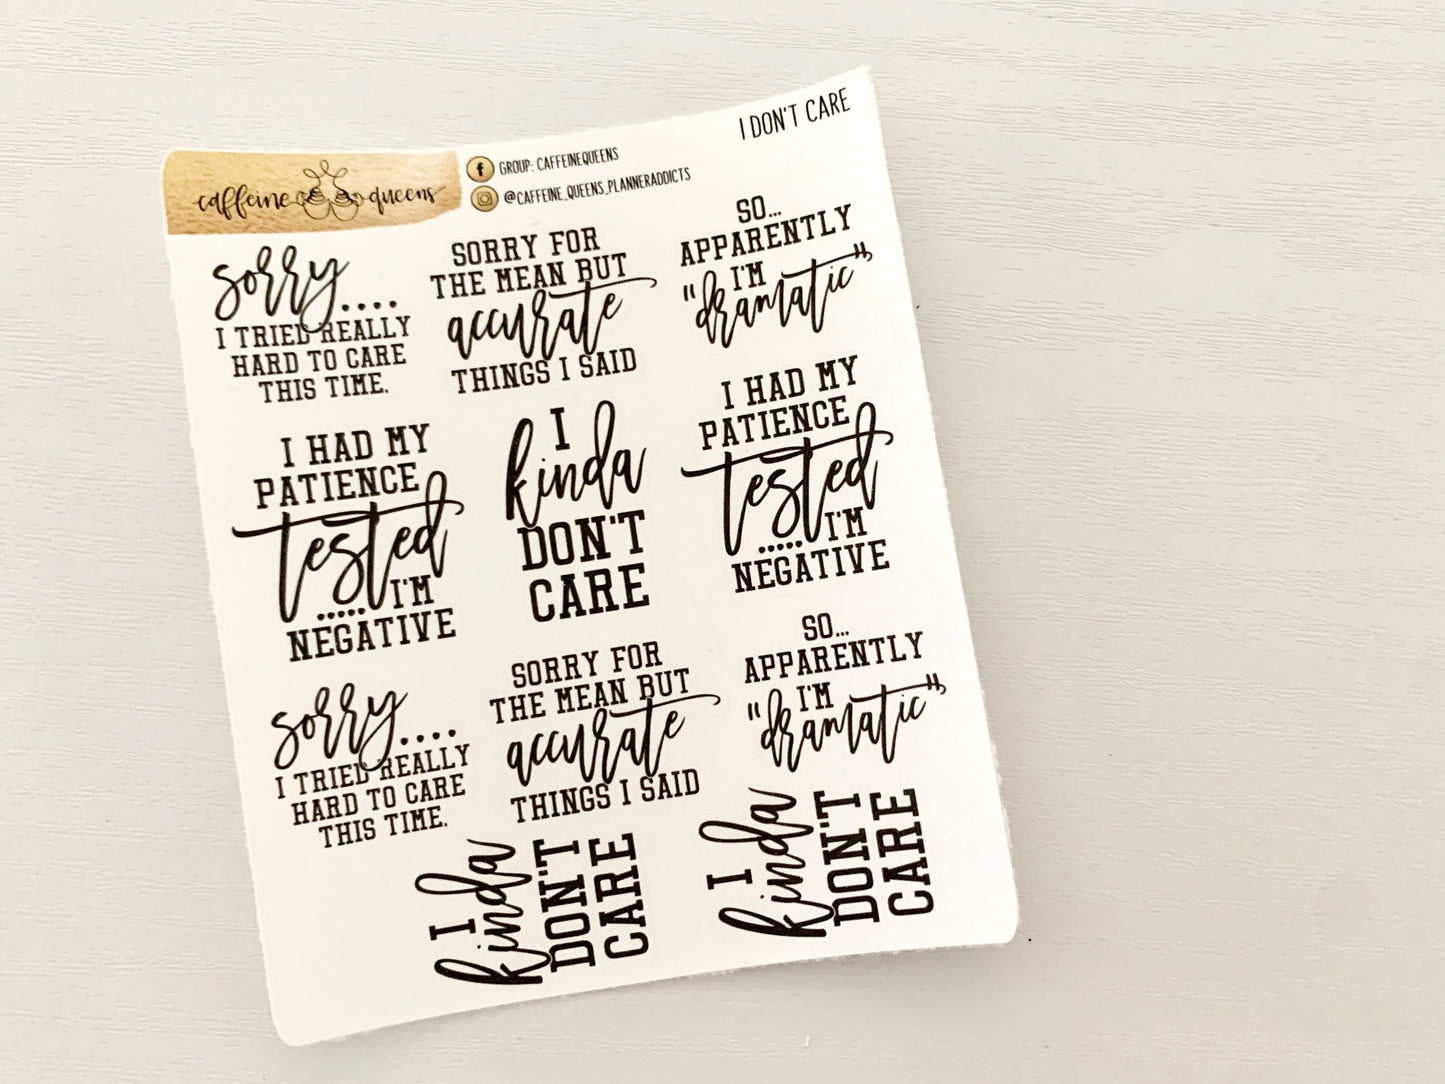 caffeine queens
GROUP: CAFFEINEQUEENS
@CAFFEINE_QUEENS_PLANNERADDICTS
I DON'T CARE
sorry....
I TRIED REALLY
HARD TO CARE
THIS TIME.
SORRY FOR
THE MEAN BUT
accurate
THINGS I SAID
SO...
APPARENTLY
I'M
"dramatic"
I HAD MY
PATIENCE
tested
.....I'M
NEGATIVE
I
kinda
DON'T
CARE
I HAD MY
PATIENCE
tested
.....I'M
NEGATIVE
sorry....
I TRIED REALLY
HARD TO CARE
THIS TIME.
SORRY FOR
THE MEAN BUT
accurate
THINGS I SAID
SO...
APPARENTLY
I'M
"dramatic"
I
kinda
DON'T
CARE
I
kinda
DON'T
CARE